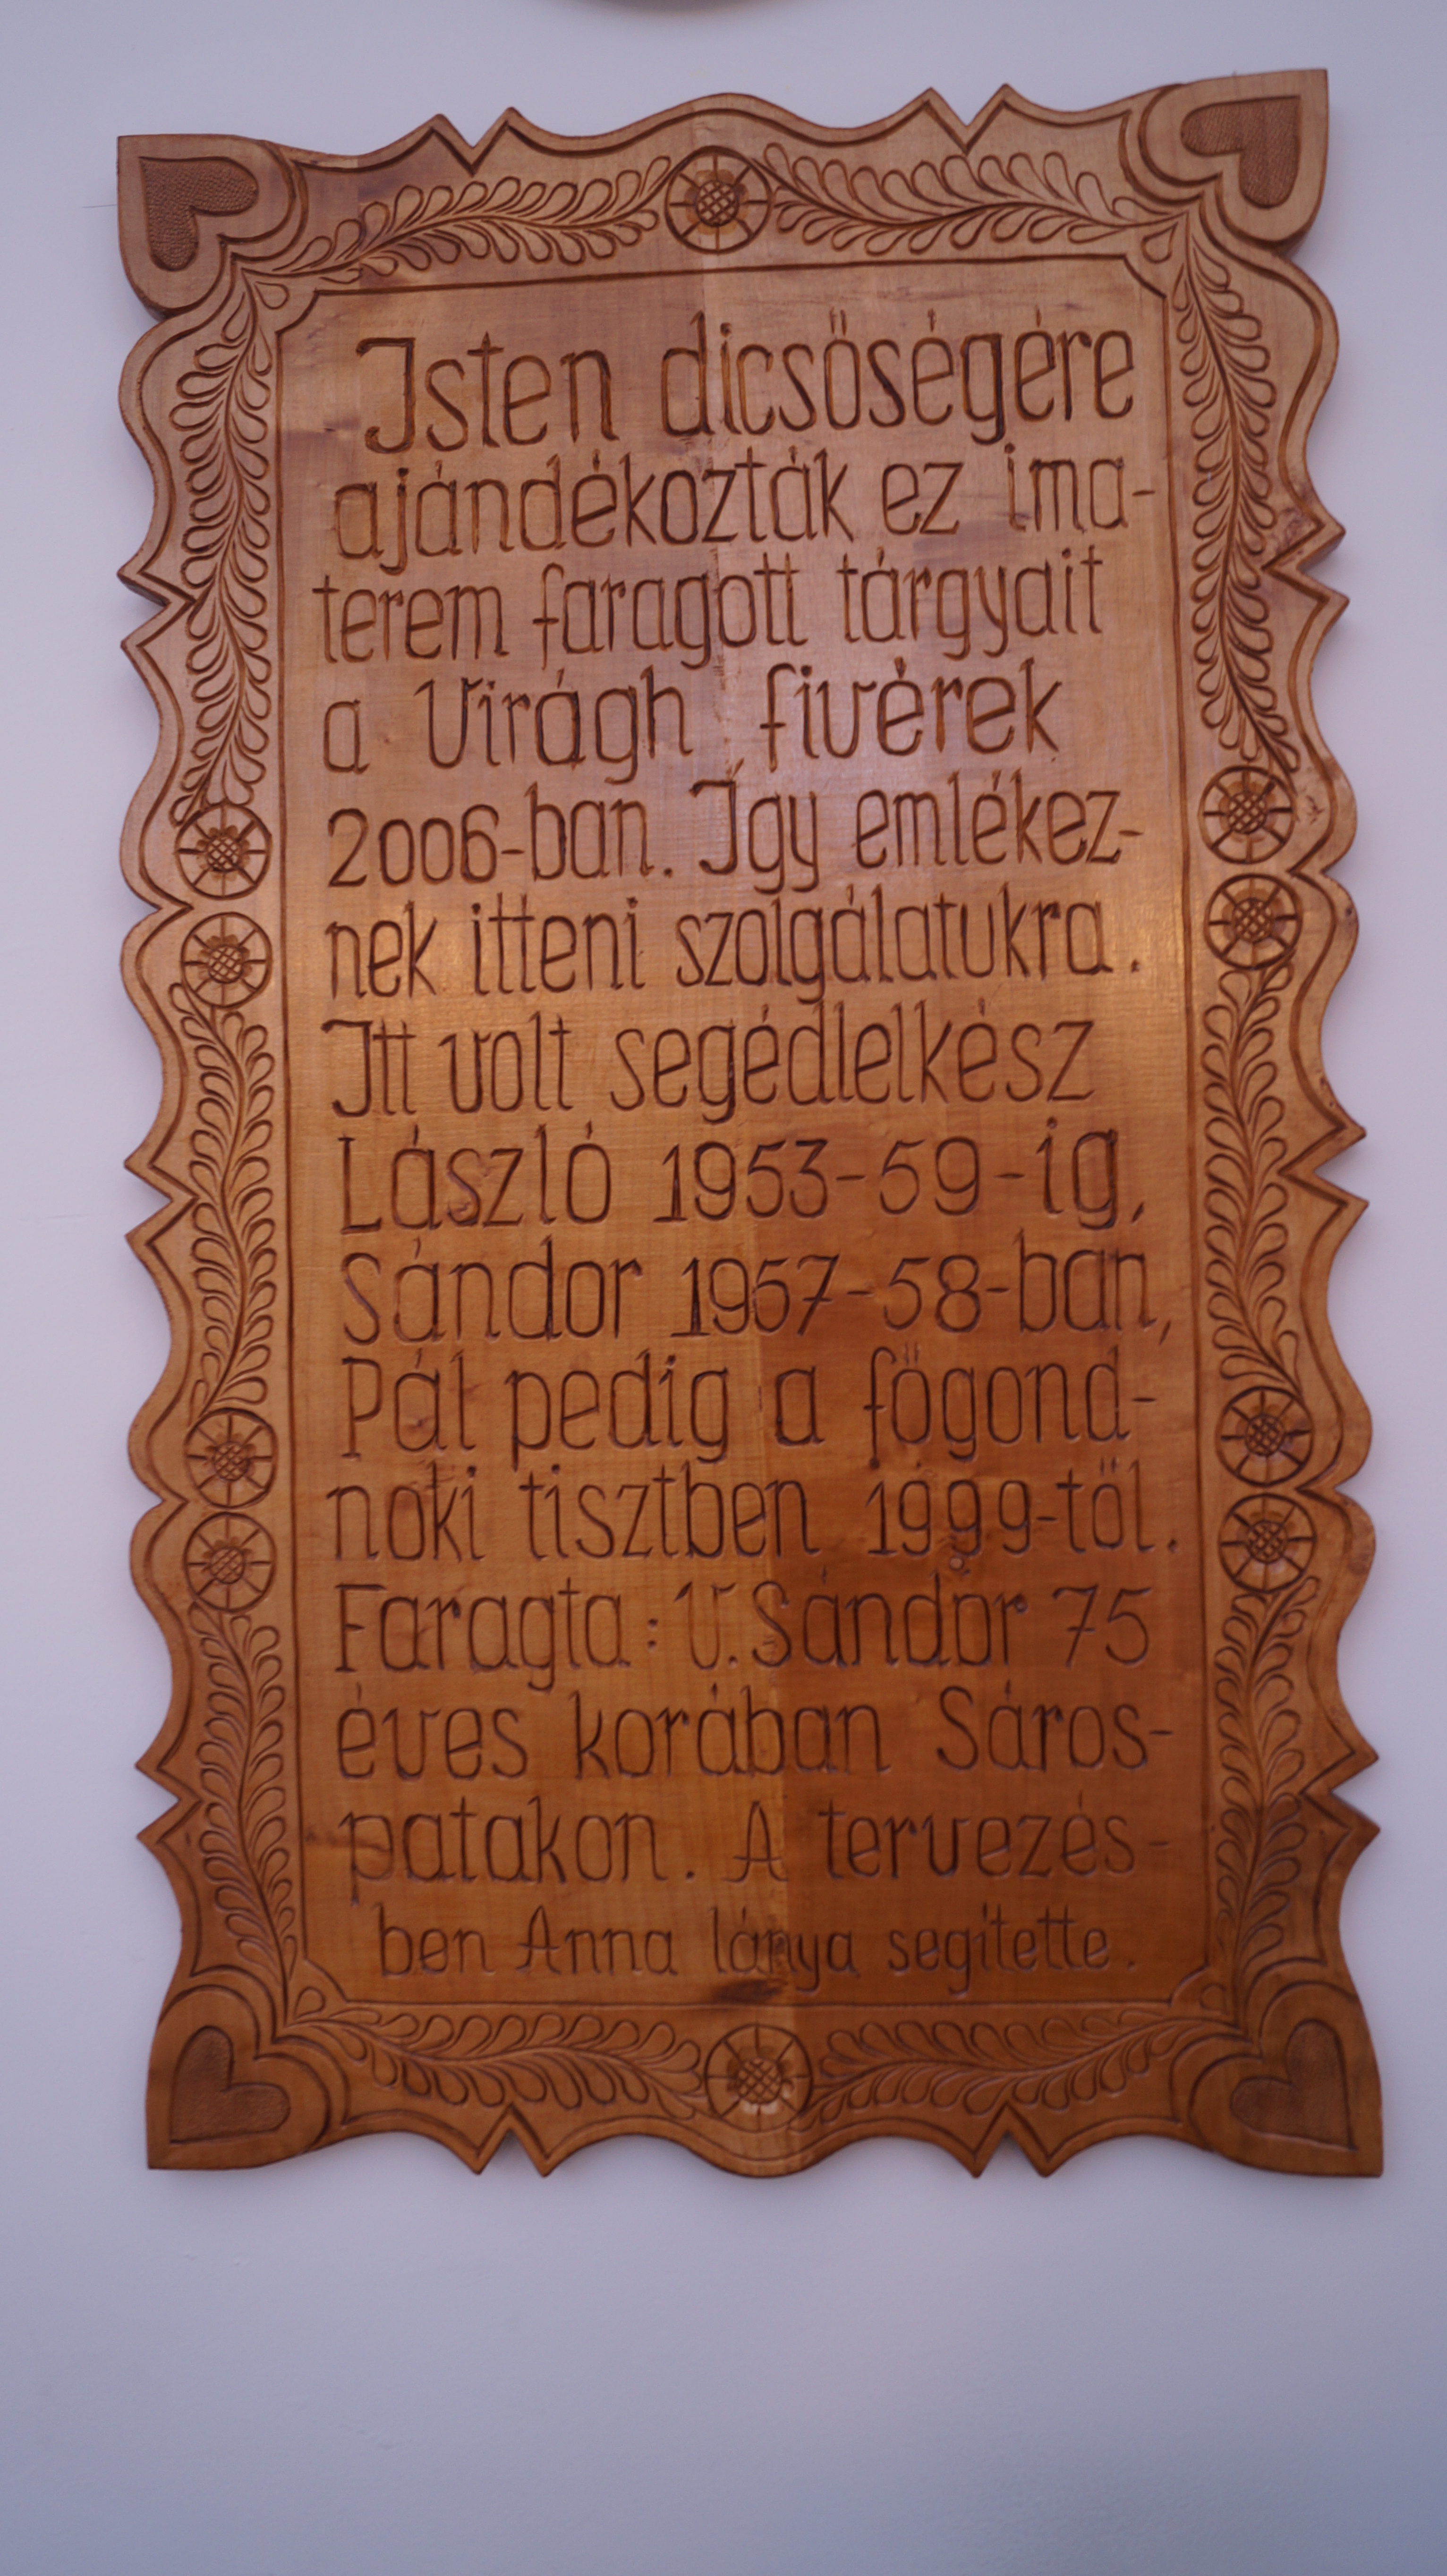 Isten dicsőségére
ajándékozták ez ima-
terem faragott tárgyait
a Virágh fivérek
2006-ban. Így emlékez-
nek itteni szolgálatukra.
Itt volt segédlelkész
László 1953-59-ig,
Sándor 1957-58-ban,
Pál pedig a főgond-
noki tisztben 1999-től.
Faragta: V. Sándor 75
éves korában Sáros-
patakon. A tervezés-
ben Anna lánya segítette.